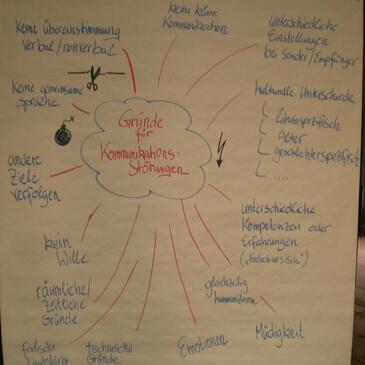 keine klare
Kommunikation
keine übereinstimmung
verbal / nonverbal
unterschiedliche
Einstellungen
bei Sender/Empfänger
keine gemeinsame
sprache
kulturelle Unterschiede
länderspezifisch
Alter
geschlechterspezifisch
....
Gründe
für
Kommunikations-
Störungen
andere
Ziele
verfolgen
unterschiedliche
Kompetenzen oder
Erfahrungen
("fachchinesisch")
kein
Wille
räumliche/
Zeitliche
Gründe
gleichzeitig
kommunizieren
Müdigkeit
Emotionen
technische
Gründe
falsche